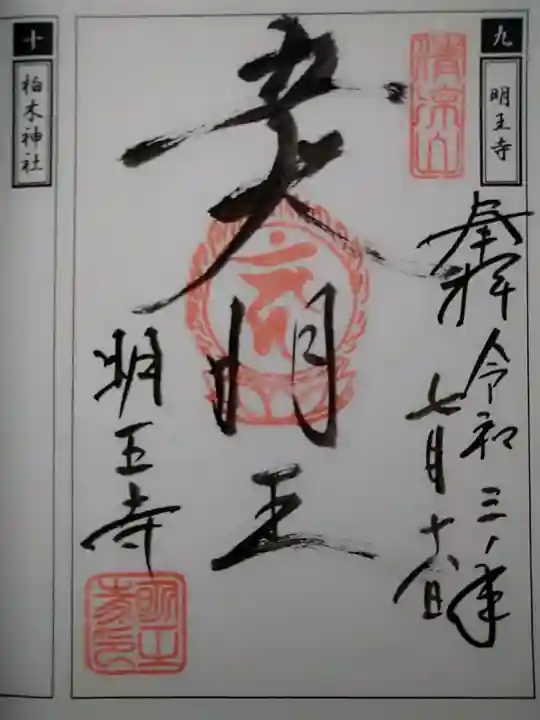 九
明王寺
清涼山
奉拝
令和三年
七月十八日
五大明王
明王寺
明王寺印
十
柏木神社